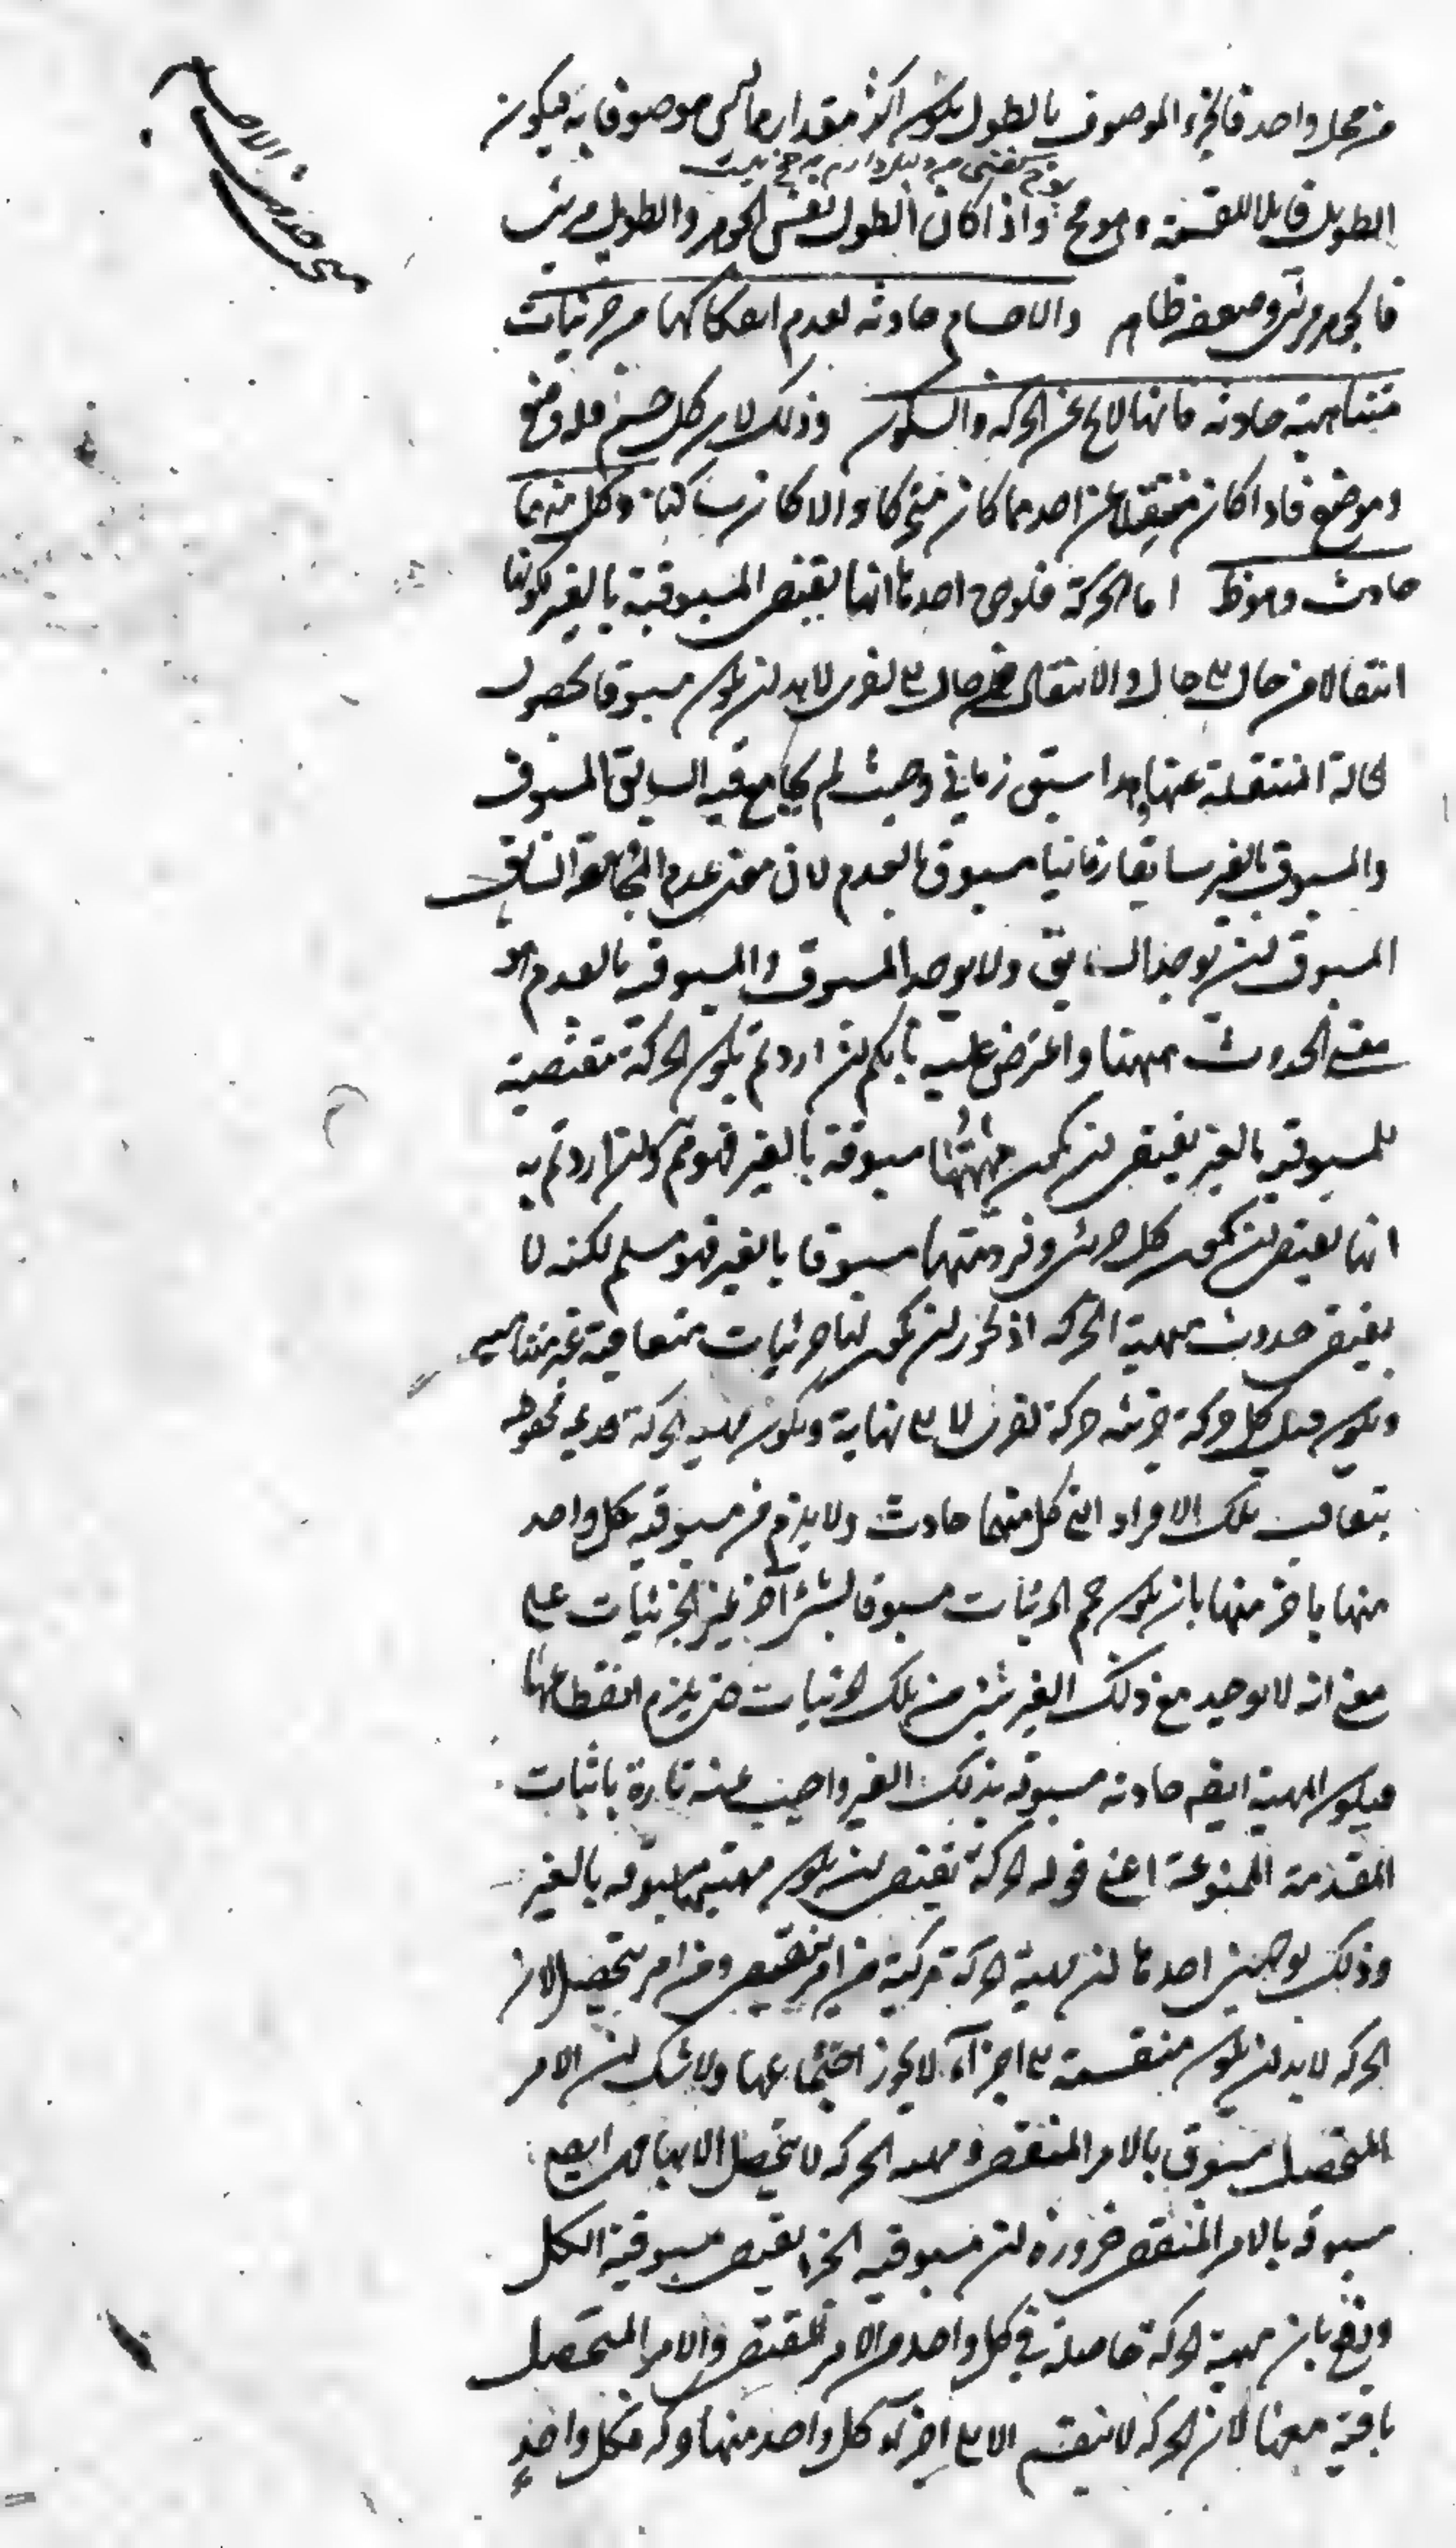 مبحث حدوث الاجسام
من محل واحد فالجزء الموصوف بالطول يكون اكثر مقدارا مما ليس موصوفا به فيكون
الطويل قابلا للقسمة وهو مح واذا كان الطول نفس الجوهر والطويل مرئى
فالجوهر مرئى وضعفه ظاهر والاجسام حادثه لعدم انفكاكها من جزئيات
متناهية حادثه فانها لايخ عن الحركه والسكون وذلك لان كل جسم فله وضع
وموضع فاذا كان منتقلا عن احدهما كان متحركا والا كان ساكنا وكل منهما
حادث وهو ظ اما الحركة فلوجوه احدها انها يقتضى المسبوقية بالغير لكونها
انتقالا من حال الى حال والانتقال من حال الى اخرى لابد ان يكون مسبوقا بحصول
الحالة المنتقلة عنها وهذا سبق زمانى وحيث لم يجامع فيه السابق المسبوق
والمسبوق بالغير سابقا زمانيا مسبوق بالعدم لان معنى عدم مجامعة السابق
المسبوق ان يوجد السابق ولا يوجد المسبوق والمسبوق بالعدم هو
معنى الحدوث ههنا واعترض عليه بانكم ان اردتم بكون الحركة مقتضية
للمسبوقيه بالغير يقتضى ان يكون مهيتها مسبوقة بالغير فهو مم وان اردتم به
انها يقتضى ان يكون كل جزئى وفرد منها مسبوقا بالغير فهو مسلم لكنه لا
يقتضى حدوث مهية الحركه اذ يجوز ان يكون لها جزئيات متعاقبة غير متناهية
ويكون قبل كل حركة جزئيه حركة اخرى لا الى نهاية ويكون مهيه الحركة قديمه محفوظه
بتعاقب تلك الافراد التى كل منها حادث ولا يلزم من مسبوقيه كل واحد
منها باخر منها بان يكون جميع الجزئيات مسبوقا بشئ آخر غير الجزئيات على
معنى انه لا يوجد مع ذلك الغير شئ من تلك الجزئيات حتى يلزم انقطاعها
فيكون المهية ايضه حادثه مسبوقه بذلك الغير واجيب عنه تارة باثبات
المقدمة الممنوعة اعنى قوله الحركة تقتضى ان يكون مهيتها مسبوقه بالغير
وذلك بوجهين احدهما ان مهية الحركة مركبة من امر ينقضى ومن امر يتحصل لان
الحركه لابد ان يكون منقسمة الى اجزآء لا يجوز اجتماعها ولا شك ان الامر
المتحصل مسبوق بالامر المنقضى ومهيه الحركه لا يتحصل الا بهما ايضه
مسبوقه بالامر المنقضى ضرورة ان مسبوقيه الجزء يقتضى مسبوقية الكل
ودفع بان مهية الحركة حاصلة فى كل واحد من الامر المنقضى والامر المتحصل
باقية معها لان الحركه لا ينقسم الا الى اجزآء كل واحد منها حركه فكل واحد